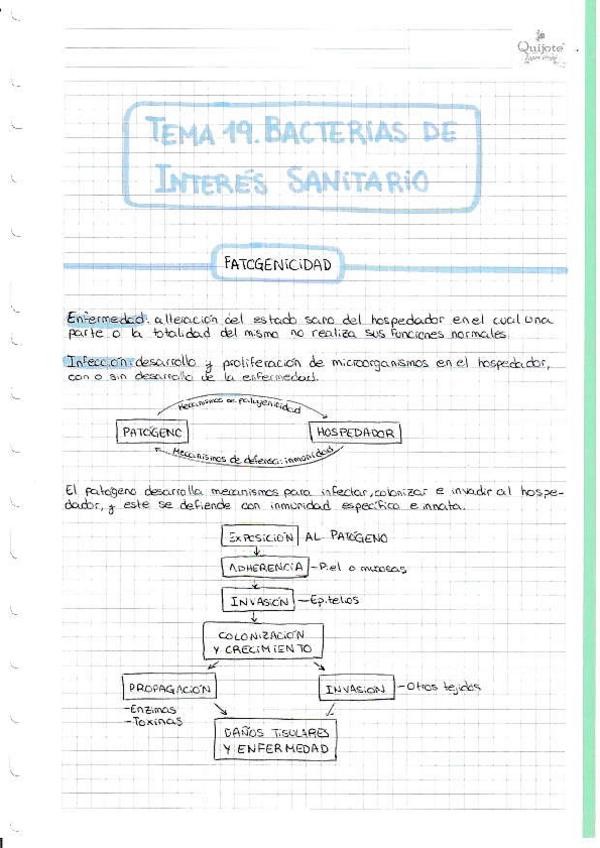 Quijote
TEMA 19. BACTERIAS DE
INTERÉS SANITARIO
PATOGENICIDAD
Enfermedad: alteración del estado sano del hospedador en el cual una
parte o la totalidad del mismo no realiza sus funciones normales.
Infección: desarrollo y proliferación de microorganismos en el hospedador,
con o sin desarrollo de la enfermedad.
Mecanismos de patogenicidad
PATÓGENO
HOSPEDADOR
Mecanismos de defensa: inmunidad
El patógeno desarrolla mecanismos para infectar, colonizar e invadir al hospe-
dador, y este se defiende con inmunidad específica e innata.
EXPOSICIÓN AL PATÓGENO
ADHERENCIA - Piel o mucosas
INVASIÓN - Epitelios
COLONIZACIÓN
Y CRECIMIENTO
PROPAGACIÓN
INVASIÓN - Otros tejidos
- Enzimas
- Toxinas
DAÑOS TISULARES
Y ENFERMEDAD